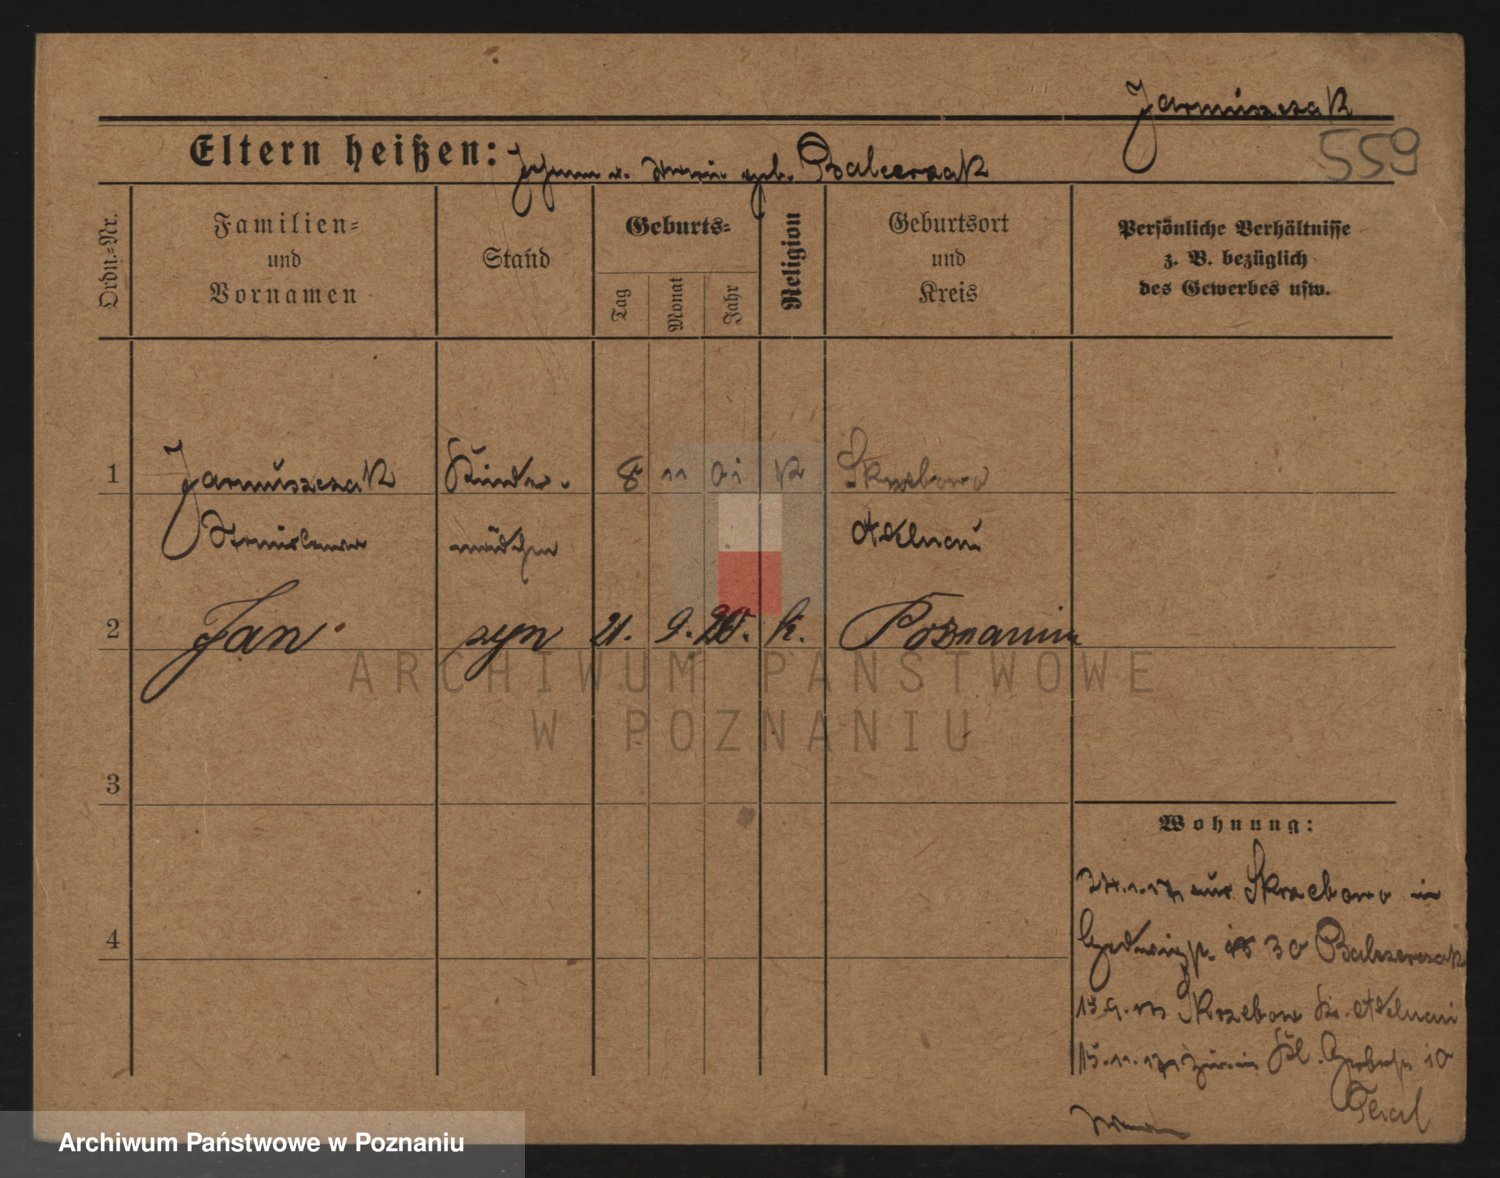 Jarmuszczak
559
Eltern heißen: Johann u. Maria geb. Balcerzak
Ordn.-Nr.
Familien- und Vornamen
Stand
Geburts-
Tag
Monat
Jahr
Religion
Geburtsort und Kreis
Persönliche Verhältnisse
z. B. bezüglich
des Gewerbes usw.
1 Jarmuszczak Kinder- 8 11 01 K Skrzebowo
Stanislawa mädchen Adelnau
2 Jan syn 21. 9. 20. k. Poznaniu
3
4
Wohnung:
aus Skrzebowo in
30 Balczerzak
Skrzebow Kr. Adelnau
15.11. Kl. Gerberstr. 10
ARCHIWUM PAŃSTWOWE
W POZNANIU
Archiwum Państwowe w Poznaniu